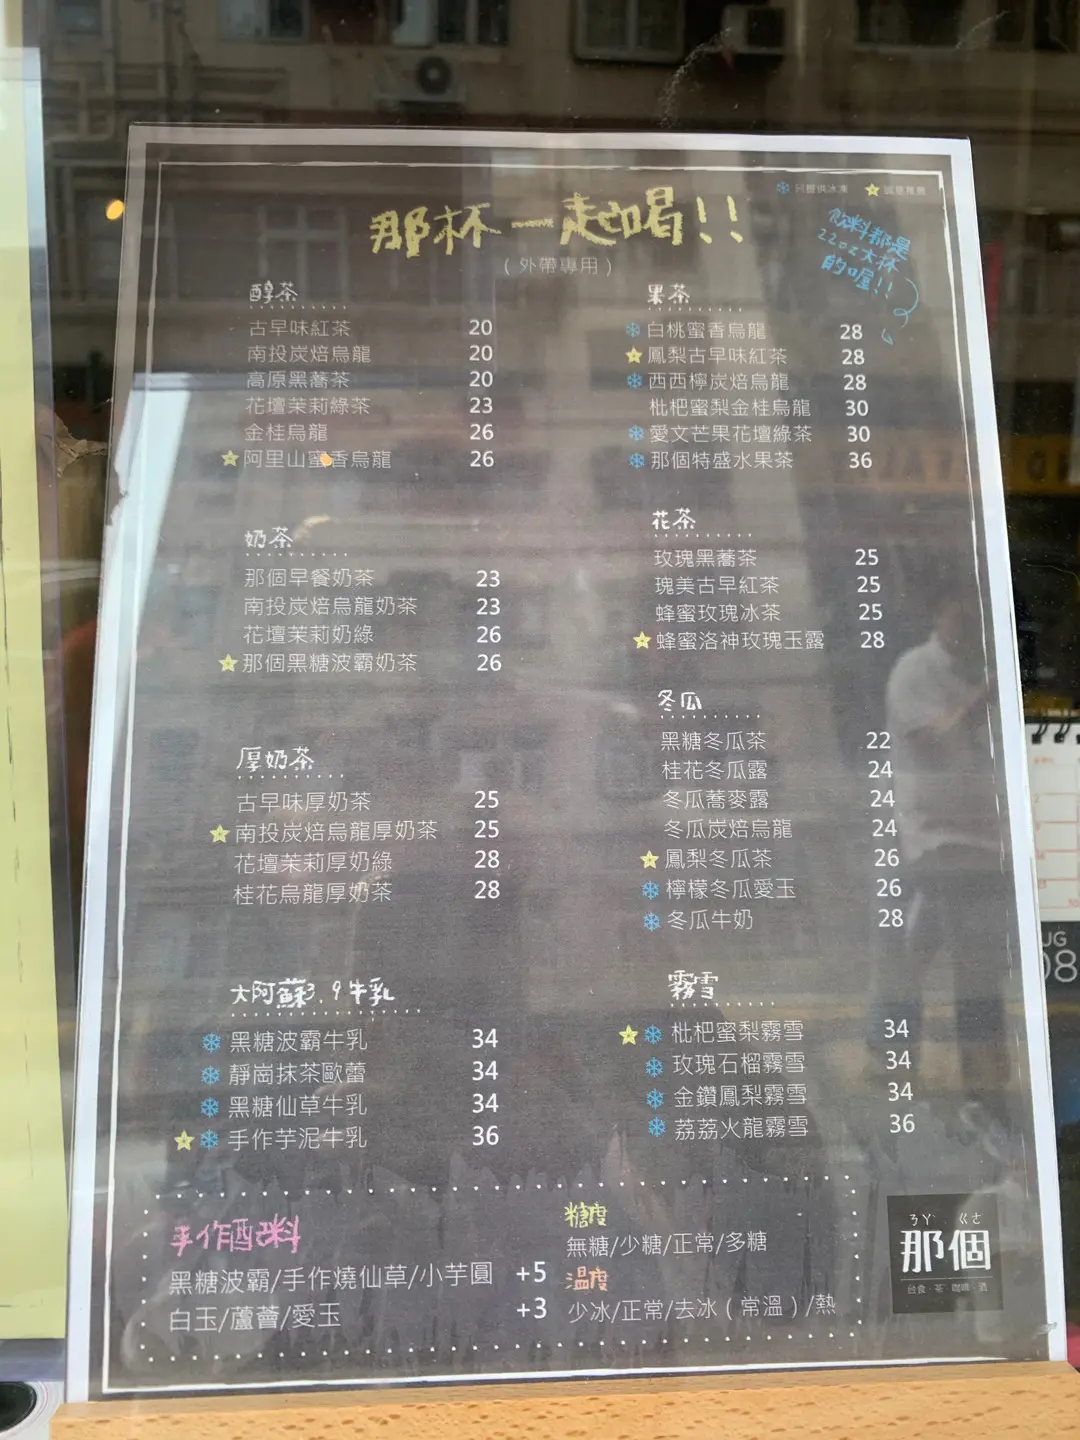 只提供冰凍
誠意推薦
那杯一起喝!!
(外帶專用)
飲料都是
22oz大杯
的喔!!
醇茶
古早味紅茶 20
南投炭焙烏龍 20
高原黑蕎茶 20
花壇茉莉綠茶 23
金桂烏龍 26
阿里山蜜香烏龍 26
奶茶
那個早餐奶茶 23
南投炭焙烏龍奶茶 23
花壇茉莉奶綠 26
那個黑糖波霸奶茶 26
厚奶茶
古早味厚奶茶 25
南投炭焙烏龍厚奶茶 25
花壇茉莉厚奶綠 28
桂花烏龍厚奶茶 28
大阿蘇3.9牛乳
黑糖波霸牛乳 34
靜崗抹茶歐蕾 34
黑糖仙草牛乳 34
手作芋泥牛乳 36
果茶
白桃蜜香烏龍 28
鳳梨古早味紅茶 28
西西檸炭焙烏龍 28
枇杷蜜梨金桂烏龍 30
愛文芒果花壇綠茶 30
那個特盛水果茶 36
花茶
玫瑰黑蕎茶 25
瑰美古早紅茶 25
蜂蜜玫瑰冰茶 25
蜂蜜洛神玫瑰玉露 28
冬瓜
黑糖冬瓜茶 22
桂花冬瓜露 24
冬瓜蕎麥露 24
冬瓜炭焙烏龍 24
鳳梨冬瓜茶 26
檸檬冬瓜愛玉 26
冬瓜牛奶 28
霧雪
枇杷蜜梨霧雪 34
玫瑰石榴霧雪 34
金鑽鳳梨霧雪 34
荔荔火龍霧雪 36
手作配料
黑糖波霸/手作燒仙草/小芋圓 +5
白玉/蘆薈/愛玉 +3
糖度
無糖/少糖/正常/多糖
溫度
少冰/正常/去冰(常溫)/熱
ㄋㄚˋ ㄍㄜ
那個
台食·茶·咖啡·酒
08